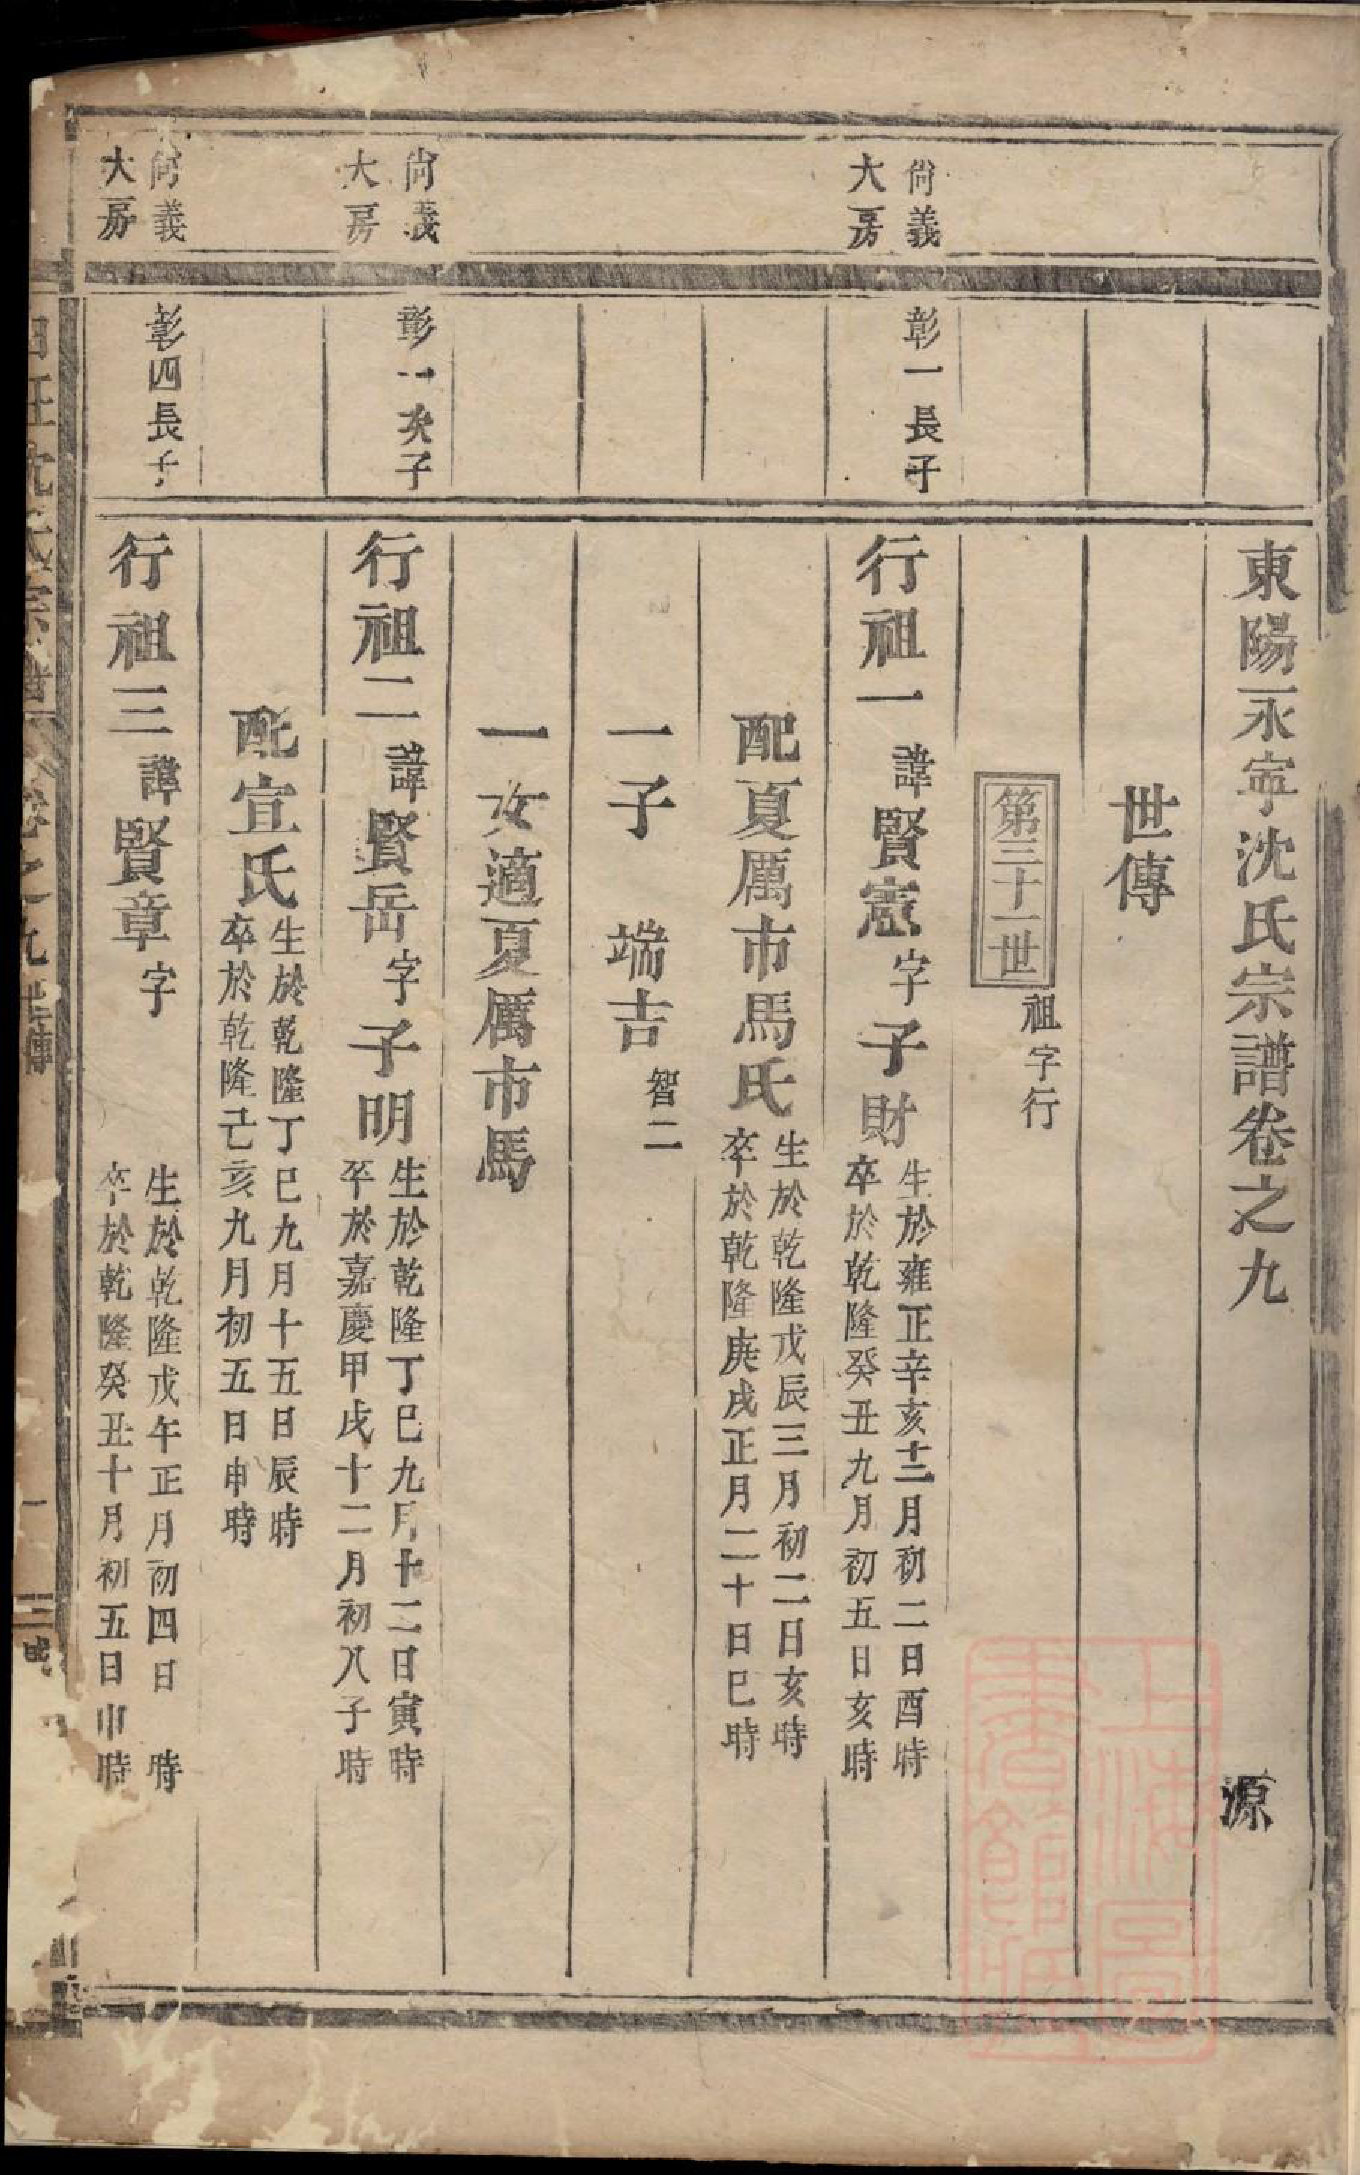 東陽永寧沈氏宗譜卷之九
源
世傳
第三十一世
祖字行
尚義
大房
彰一長子
行祖一 諱賢憲 字子財
生於雍正辛亥十二月初二日酉時
卒於乾隆癸丑九月初五日亥時
配夏厲市馬氏
生於乾隆戊辰三月初二日亥時
卒於乾隆庚戌正月二十日巳時
一子 端吉 智二
一女適夏厲市馬
尚義
大房
彰一次子
行祖二 諱賢岳 字子明
生於乾隆丁巳九月十二日寅時
卒於嘉慶甲戌十二月初八子時
配宣氏
生於乾隆丁巳九月十五日辰時
卒於乾隆己亥九月初五日申時
尚義
大房
彰四長子
行祖三 諱賢章 字
生於乾隆戊午正月初四日 時
卒於乾隆癸丑十月初五日申時
沈氏宗譜 卷之九世傳
上海圖書館藏